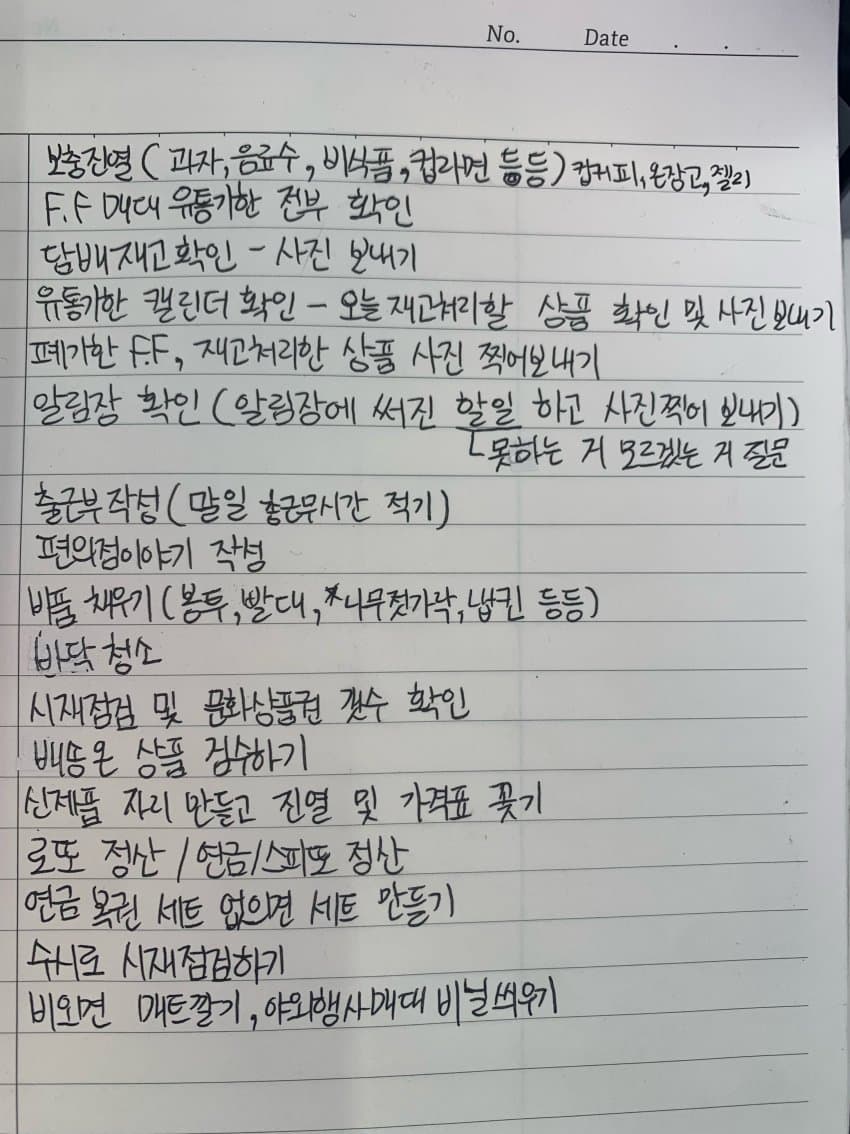 No. Date . .
보충진열 ( 과자, 음료수, 비식품, 컵라면 등등) 컵커피, 온장고, 젤리
F.F 매대 유통기한 전부 확인
담배재고확인 - 사진 보내기
유통기한 캘린더 확인 - 오늘 재고처리할 상품 확인 및 사진보내기
폐기한 F.F, 재고처리한 상품 사진 찍어보내기
알림장 확인 (알림장에 써진 할일 하고 사진찍어 보내기)
못하는 거 모르겠는 거 질문
출근부작성 ( 말일 총근무시간 적기)
편의점이야기 작성
비품 채우기 (봉투, 빨대, *나무젓가락, 냅킨 등등)
바닥 청소
시재점검 및 문화상품권 갯수 확인
배송온 상품 검수하기
신제품 자리 만들고 진열 및 가격표 꽂기
로또 정산 / 연금/스피또 정산
연금 복권 세트 없으면 세트 만들기
수시로 시재점검하기
비오면 매트깔기, 야외행사매대 비닐씌우기